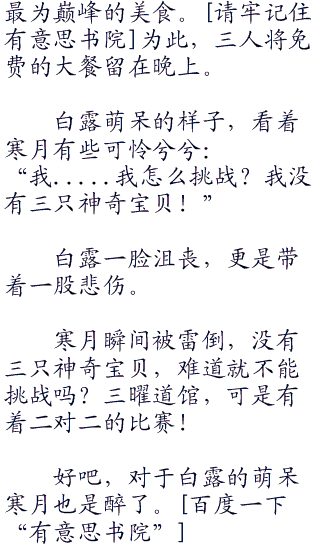 最为巅峰的美食。[请牢记住
有意思书院]为此，三人将免
费的大餐留在晚上。
白露萌呆的样子，看着
寒月有些可怜兮兮：
“我.....我怎么挑战？我没
有三只神奇宝贝！”
白露一脸沮丧，更是带
着一股悲伤。
寒月瞬间被雷倒，没有
三只神奇宝贝，难道就不能
挑战吗？三曜道馆，可是有
着二对二的比赛！
好吧，对于白露的萌呆
寒月也是醉了。[百度一下
“有意思书院”]